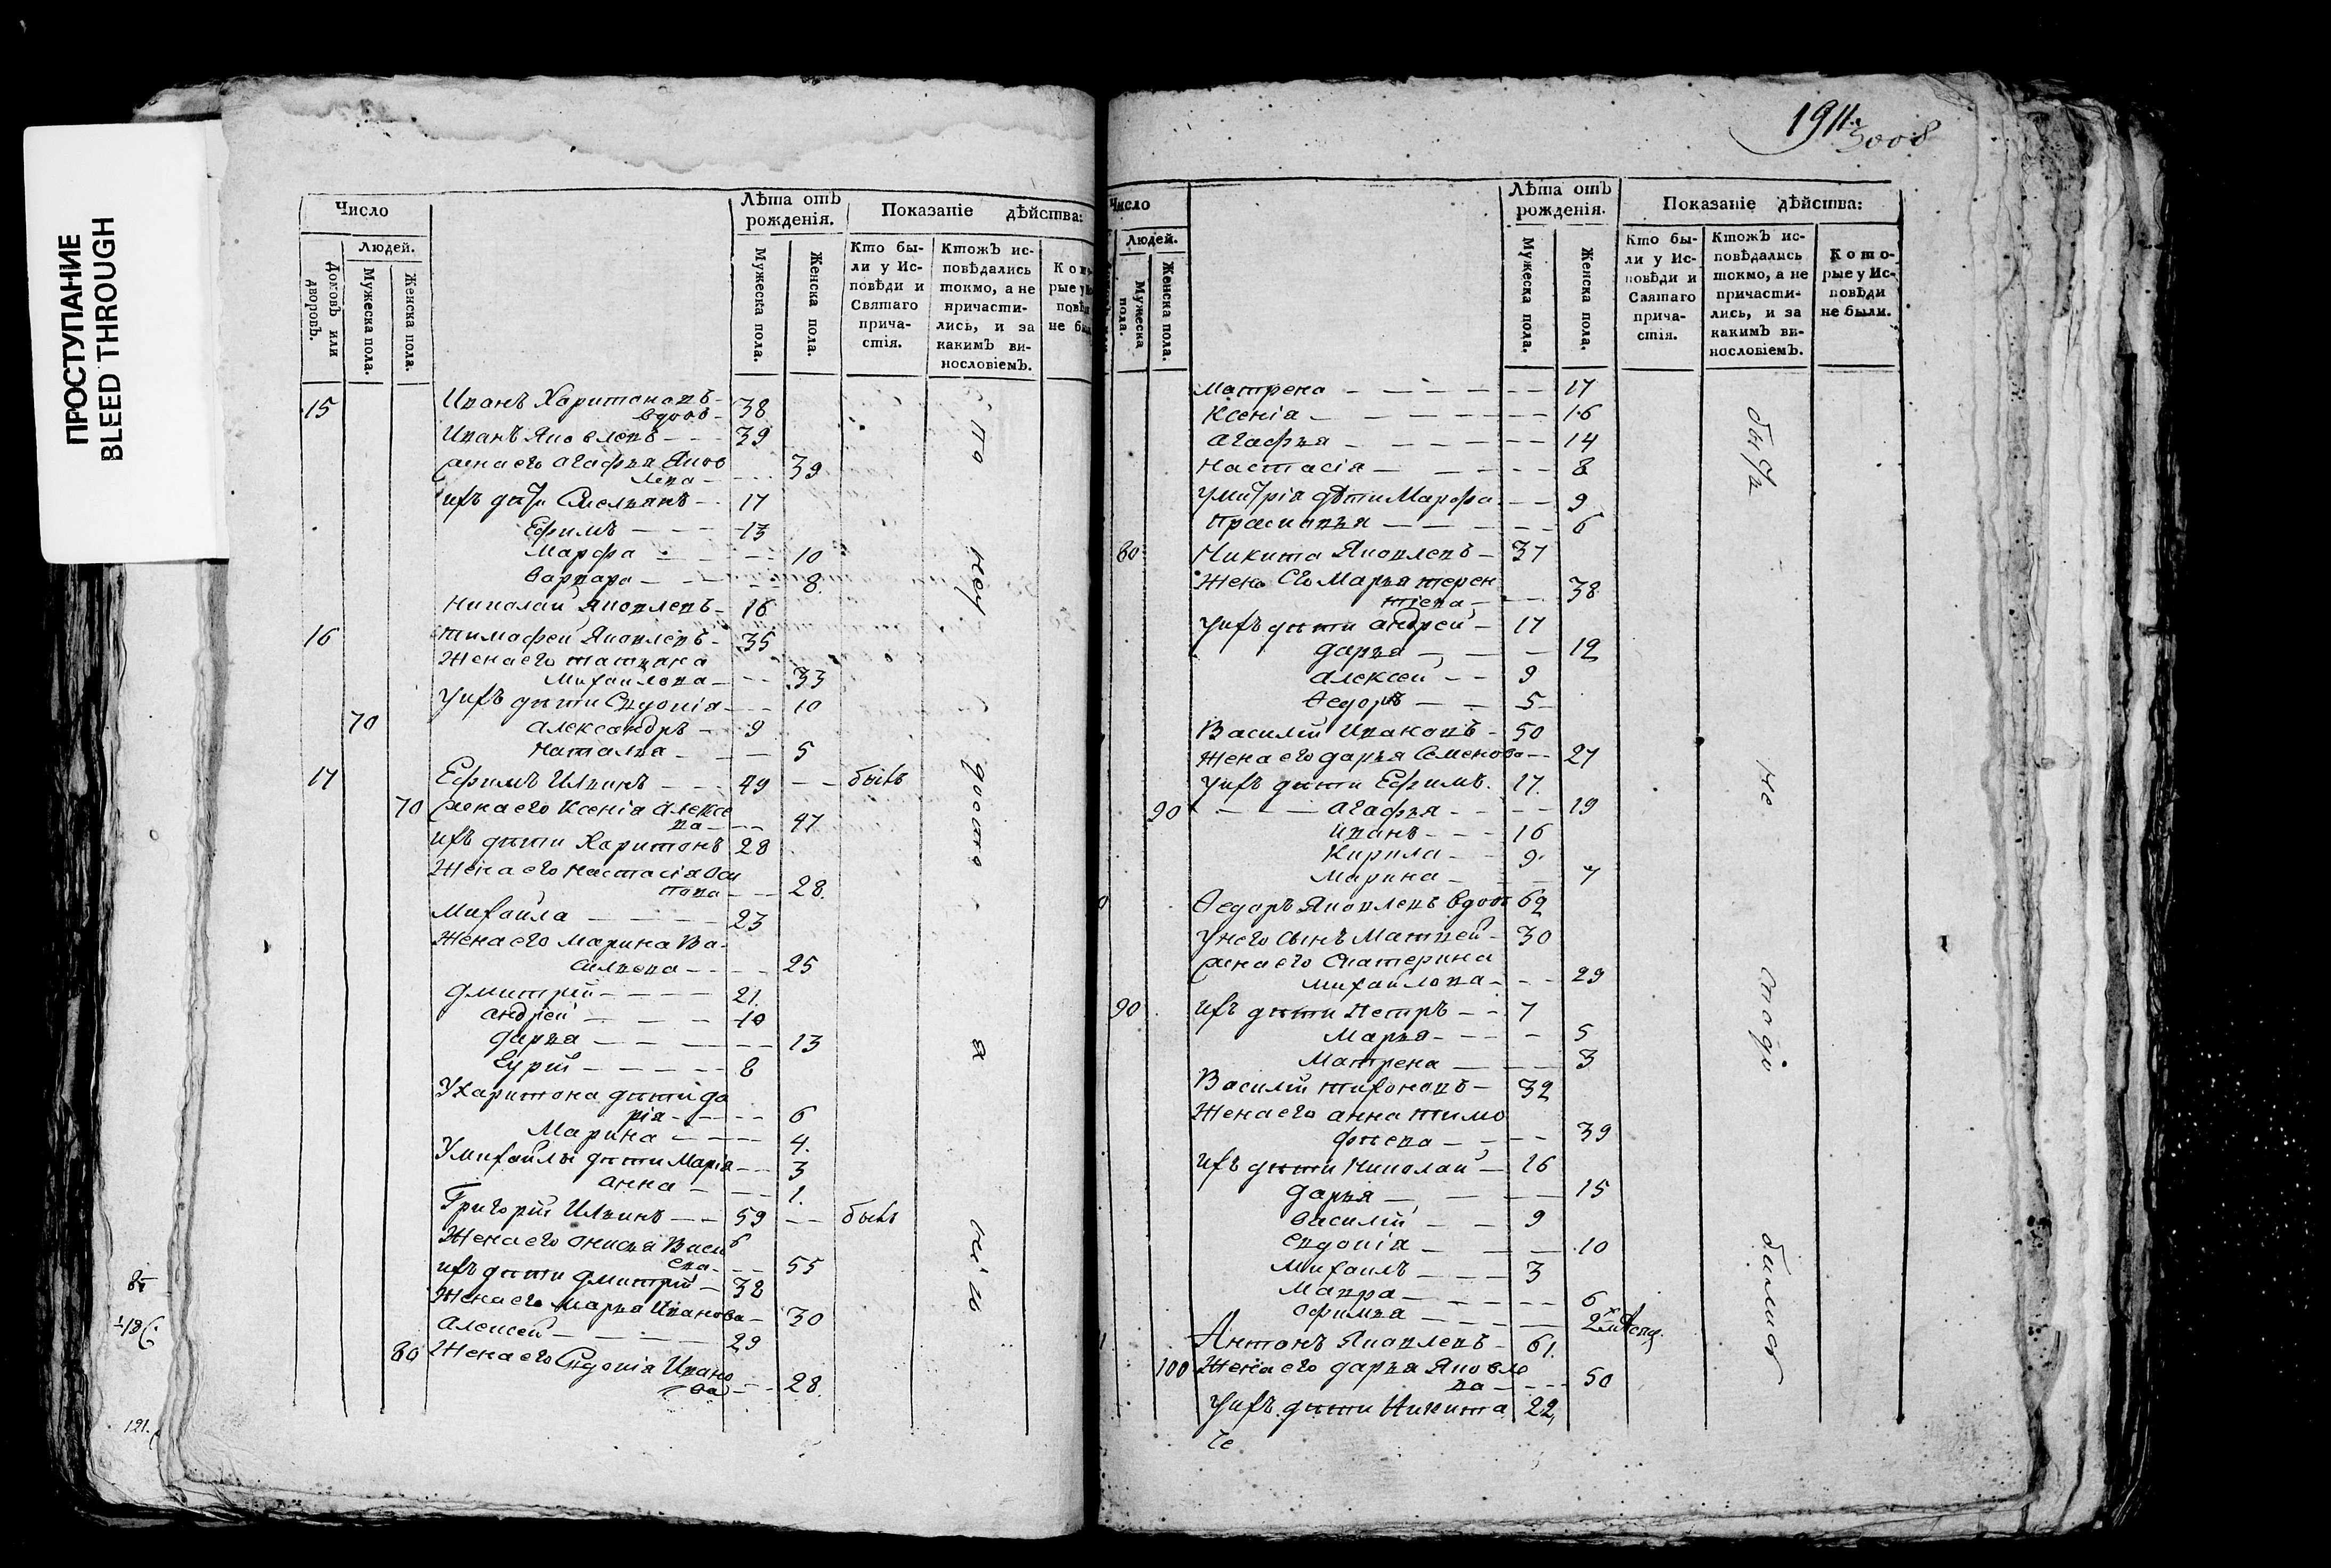 ПРОСТУПАНИЕ
BLEED THROUGH
Число
Лѣта отъ рожденія.
Показаніе дѣйства:
Домовъ или дворовъ.
Людей.
Мужеска пола.
Женска пола.
Мужеска пола.
Женска пола.
Кто были у Исповѣди и Святаго причастія.
Ктожъ исповѣдались токмо, а не причастились, и за какимъ винословіемъ.
15 Иванъ Харитоновъ
вдовъ 38
Иванъ Яковлевъ 39
Жена его Агафья Яков
лева 39
ихъ дѣти Емельянъ 17
Ефимъ 13
Марфа 10
Варвара 8.
Николай Яковлевъ 16
16 Тимофей Яковлевъ 35
Жена его Татьяна
Михайлова 33
У ихъ дѣти Евдокія 10
70 Александръ 9
Наталья 5
17 Ефимъ Ильинъ 49 бытъ
70 Жена его Ксенія Алексе
ва 47
ихъ дѣти Харитонъ 28
Жена его Настасія Оси
пова 28.
Михайла 23
Жена его Марина Ва
сильева 25
Дмитрій 21.
Андрей 10
Дарья 13
Гурій 8
У Харитона дѣти Да
рія 6
Марина 4.
У Михайлы дѣти Марія 3
Анна 1.
Григорій Ильинъ 59 бытъ
Жена его Анисья Васи
ева 55
ихъ дѣти Дмитрій 32
Жена его Марья Иванова 30
Алексей 29
80 Жена его Евдокія Ивано
ва 28.
1911.
3008
Число
Лѣта отъ рожденія.
Показаніе дѣйства:
Людей.
Мужеска пола.
Женска пола.
Мужеска пола.
Женска пола.
Кто были у Исповѣди и Святаго причастія.
Ктожъ исповѣдались токмо, а не причастились, и за какимъ винословіемъ.
Которые у Исповѣди не были.
Матрена 17
Ксенія 16
Агафья 14
Настасія 8
У Митрія дѣти Марфа 9
Прасковья 6
80 Никита Яковлевъ 37
Жена его Марья Терен
тіева 38
У ихъ дѣти Андрей 17
Дарья 12
Алексей 9
Ѳедоръ 5
Василій Ивановъ 50
Жена его Дарья Семенова 27
У ихъ дѣти Ефимъ. 17.
90 Агафья 19
Иванъ 16
Кирила 9.
Марина 7
Ѳедоръ Яковлевъ вдовъ 62
У него сынъ Матвей 30
Жена его Екатерина
Михайлова 29
90 ихъ дѣти Петръ 7
Марья 5
Матрена 3
Василій Тихоновъ 32
Жена его Анна Тимо
фѣева 39
ихъ дѣти Николай 16
Дарья 15
Василій 9
Евдокія 10
Михаилъ 3
Мавра 6
Офимья
Антонъ Яковлевъ 61.
100 Жена его Дарья Яковле
ва 50
У ихъ дѣти Никита 22,